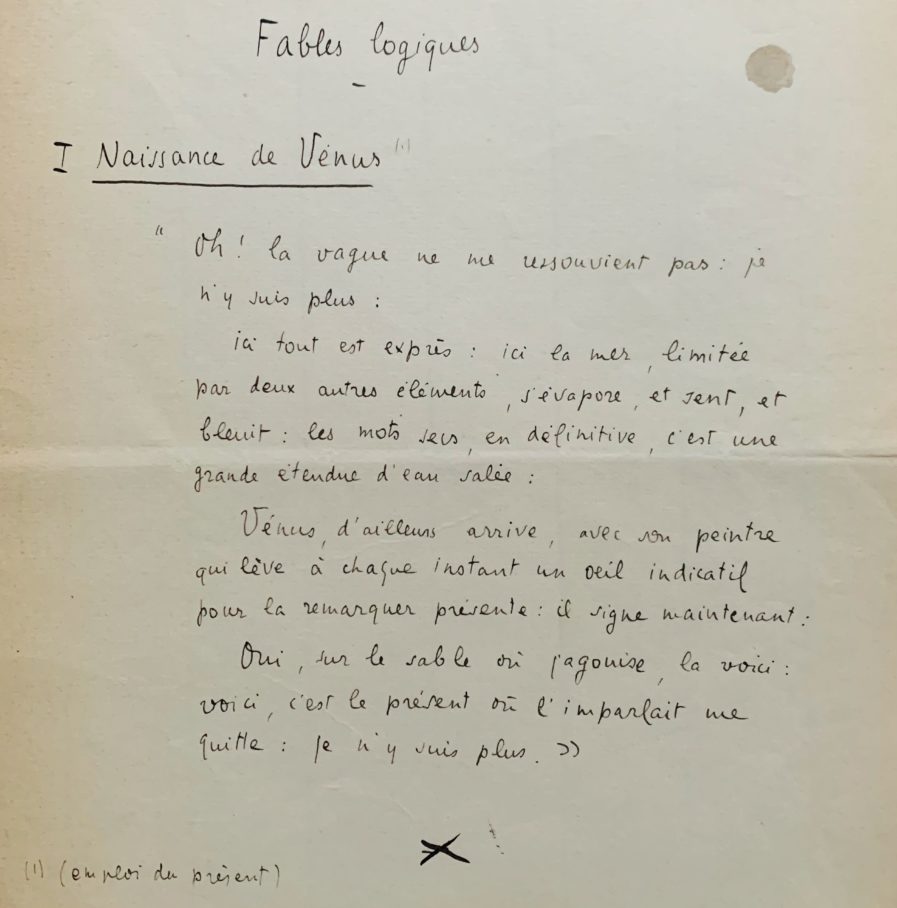 Fables logiques
I Naissance de Vénus (1)
" Oh ! la vague ne me ressouvient pas : je
n'y suis plus :
ici tout est exprès : ici la mer, limitée
par deux autres éléments, s'évapore, et sent, et
bleuit : les mots secs, en définitive, c'est une
grande étendue d'eau salée :
Vénus, d'ailleurs arrive, avec son peintre
qui lève à chaque instant un oeil indicatif
pour la remarquer présente : il signe maintenant :
Oui, sur le sable où j'agonise, la voici :
voici, c'est le présent où l'imparfait me
quitte : je n'y suis plus. »
(1) (emploi du présent)